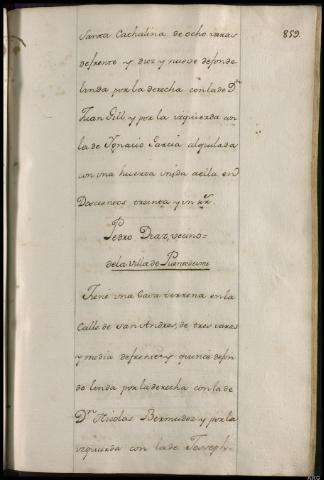 859.
Santa Cathalina de ocho varas
de frente y diez y nueve de fondo
linda por la derecha con la de Dn
Juan Gill y por la izquierda con
la de Ygnacio Garcia alquilada
con una huerta unida aella en
Doscientos treinta y un rr.
Pedro Diaz, vecino
de la Villa de Puentedeume
Tiene una Casa terrena en la
Calle de San Andres, de tres varas
y media de frente y quince de fon-
do linda por la derecha con la de
Dn Nicolas Bermudez y por la
izquierda con la de Josseph-